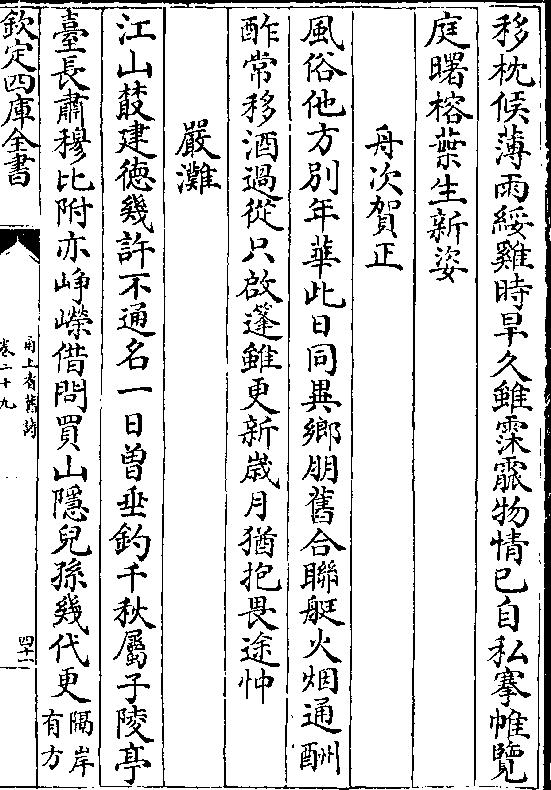 移枕候薄雨綏雞時早久雖霂霢物情已自私搴帷覽
庭曙榕葉生新姿
舟次賀正
風俗他方別年華此日同異鄉朋舊合聯艇火烟通酬
酢常移酒過從只啟蓬雖更新歲月猶抱畏途忡
嚴灘
江山鼓建德幾許不通名一日曾垂釣千秋屬子陵亭
臺長肅穆比附亦崢嶸借問買山隱兒孫幾代更
隔岸
有方
欽定四庫全書
甬上耆舊詩
卷二十九
四十二